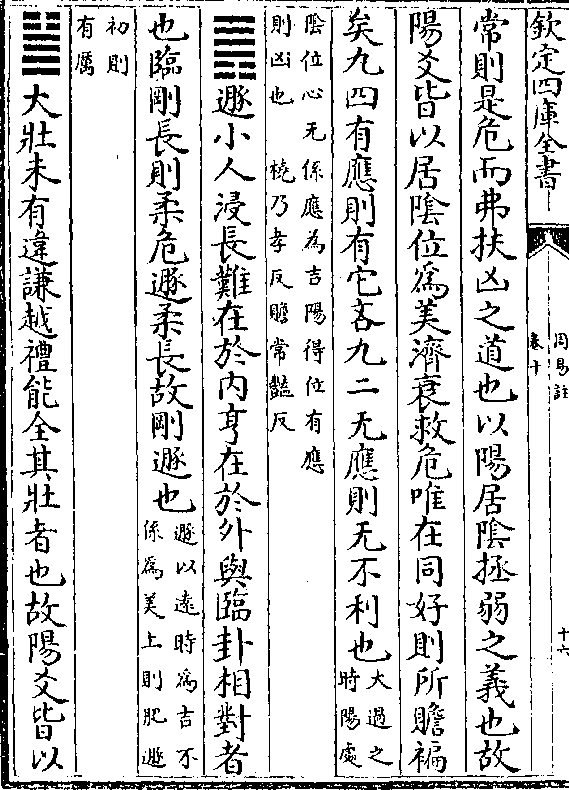 欽定四庫全書
周易註
卷十
十六
常則是危而弗扶凶之道也以陽居陰拯弱之義也故
陽爻皆以居陰位爲美濟衰救危唯在同好則所贍褊
矣九四有應則有它吝九二无應則无不利也大過之
時陽處
陰位心无係應為吉陽得位有應
則凶也 橈乃孝反贍常豔反
䷠遯小人浸長難在於内亨在於外與臨卦相對者
也臨剛長則柔危遯柔長故剛遯也遯以遠時為吉不
係爲美上則肥遯
初則
有厲
䷡大壯未有違謙越禮能全其壯者也故陽爻皆以